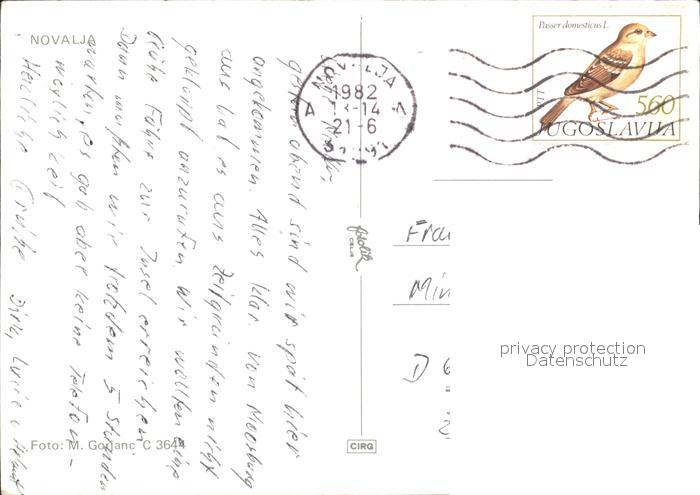 NOVALJA
gestern abend sind wir spät hier
angekommen. Alles klar. Von Moosburg
aus hat es aus Zeitgründen nicht
geklappt anzurufen. Wir wollten eine
frühe Fähre zur Insel erreichen.
Dann mußten wir trotzdem 5 Stunden
warten, es gab aber keine Telefon-
möglichkeit.
Herzliche Grüße Dirk, Lucie
Foto: M. Gorjanc C 364
fotolik
CELJE
CIRG
NOVALJA
1982
13-14
21-6
Passer domesticus L.
5.60
JUGOSLAVIJA
Frau
Min
D 6
privacy protection
Datenschutz